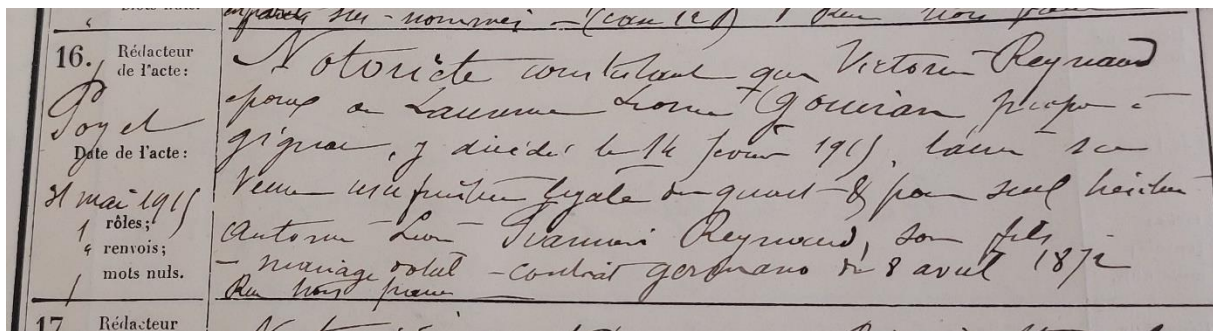 16. Rédacteur de l'acte:
Poyet
Date de l'acte:
31 mai 1915
1 rôles;
" renvois;
1 mots nuls.
Notoriété constatant que Victorin Reynaud
époux de Laurence Gouiran à
gignac, y décédé le 14 1915, laisse sa
veuve usufruitière légale du quart & pour seul héritier
Antonin Léon Reynaud, son fils
- mariage dotal - contrat germano du 8 avril 1872
Rien hors
17. Rédacteur